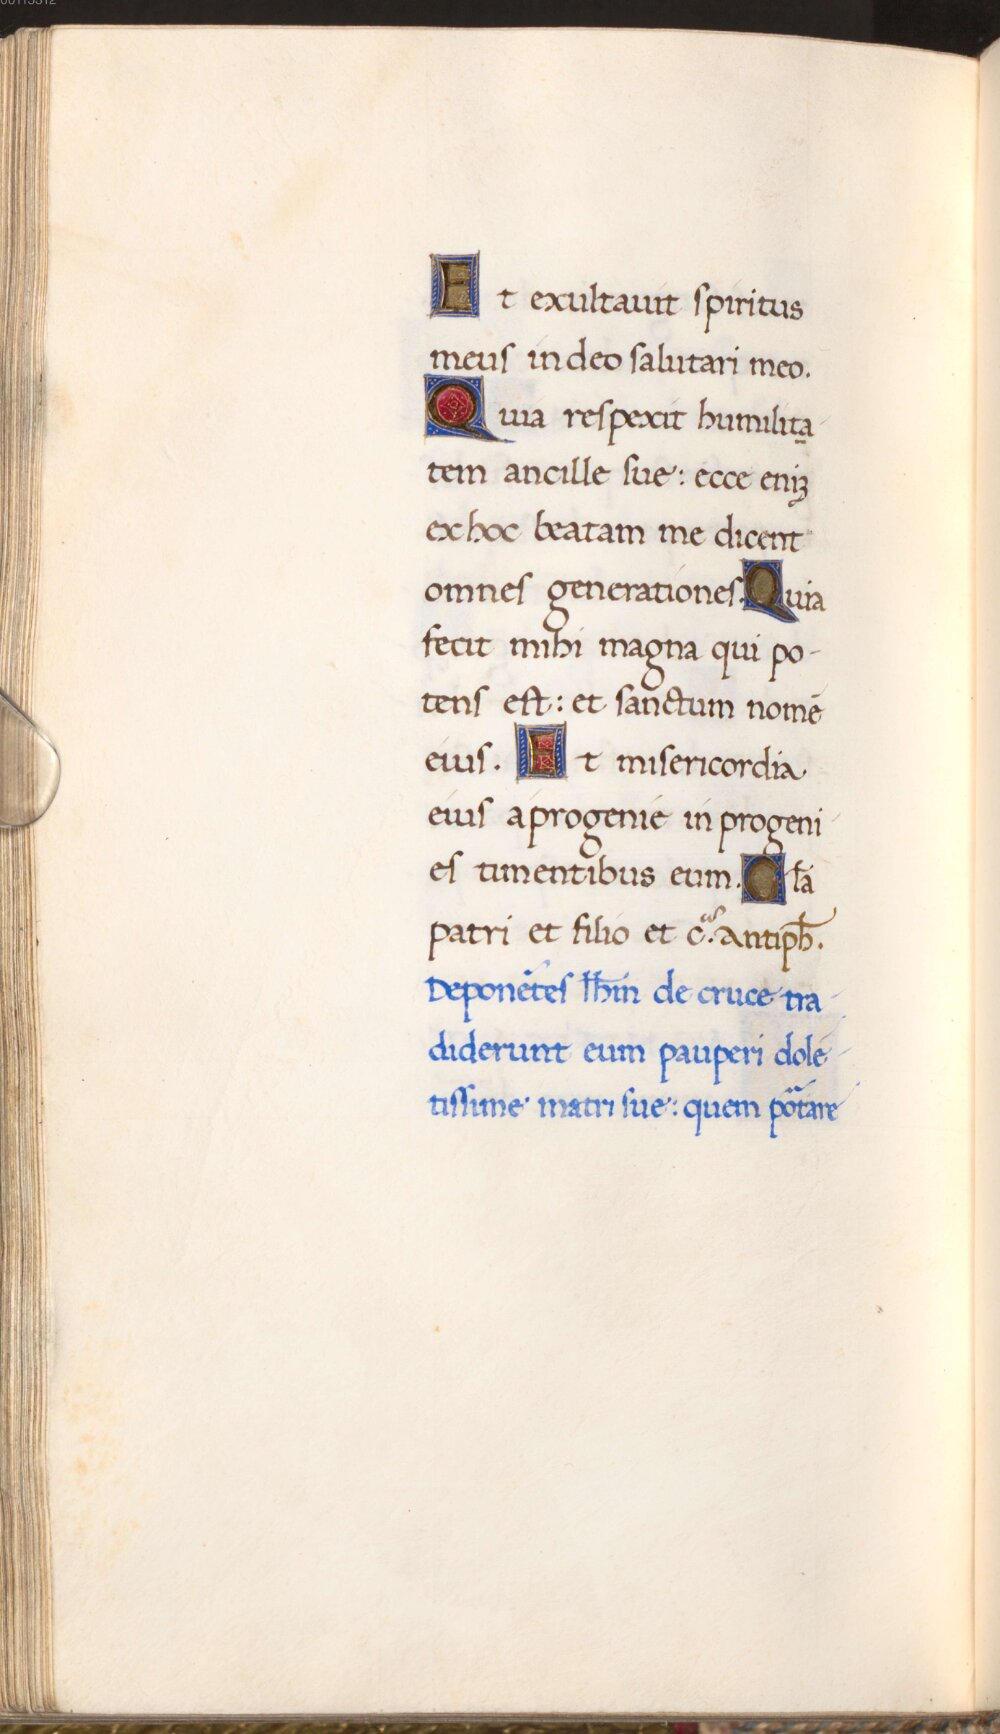 Et exultauit spiritus
meus in deo salutari meo.
Quia respexit humilita
tem ancille sue: ecce eniꝫ
ex hoc beatam me dicent
omnes generationes. Quia
fecit mihi magna qui po-
tens est: et sanctum nomē
eius. Et misericordia
eius a progenie in progeni
es timentibus eum. Gła
patri et filio et c̃. Antiph̄.
Deponẽtes de cruce tra
diderunt eum pauperi dolē
tissime matri sue: quem põtare